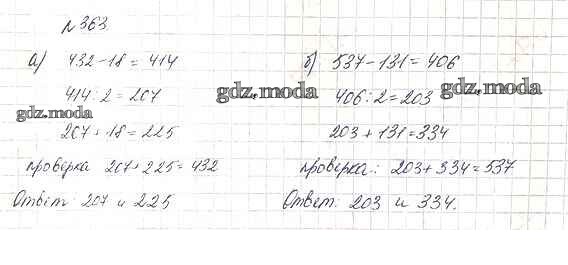 №363.
а) 432-18 = 414
414:2=207
207+18=225
проверка 207+225=432
Ответ: 207 и 225
б) 537-131=406
406:2=203
203+131=334
проверка: 203+334=537
Ответ: 203 и 334.
gdz.moda
gdz.moda
gdz.moda